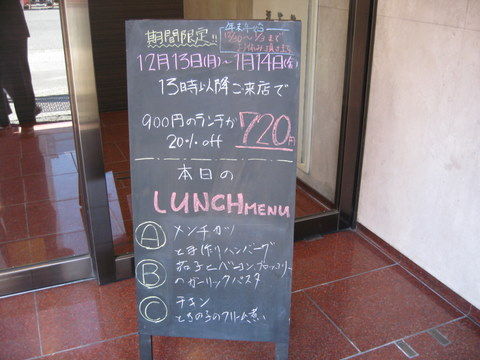 期間限定!!
年末年始
12/30〜1/3まで
お休み頂きます
12月13日(月)〜1月14日(金)
13時以降ご来店で
900円のランチが
20% off
720円
本日の
LUNCH MENU
A メンチカツ
と手作りハンバーグ
B 茄子とベーコン、ブロッコリー
のガーリックパスタ
C チキン
ときのこのクリーム煮